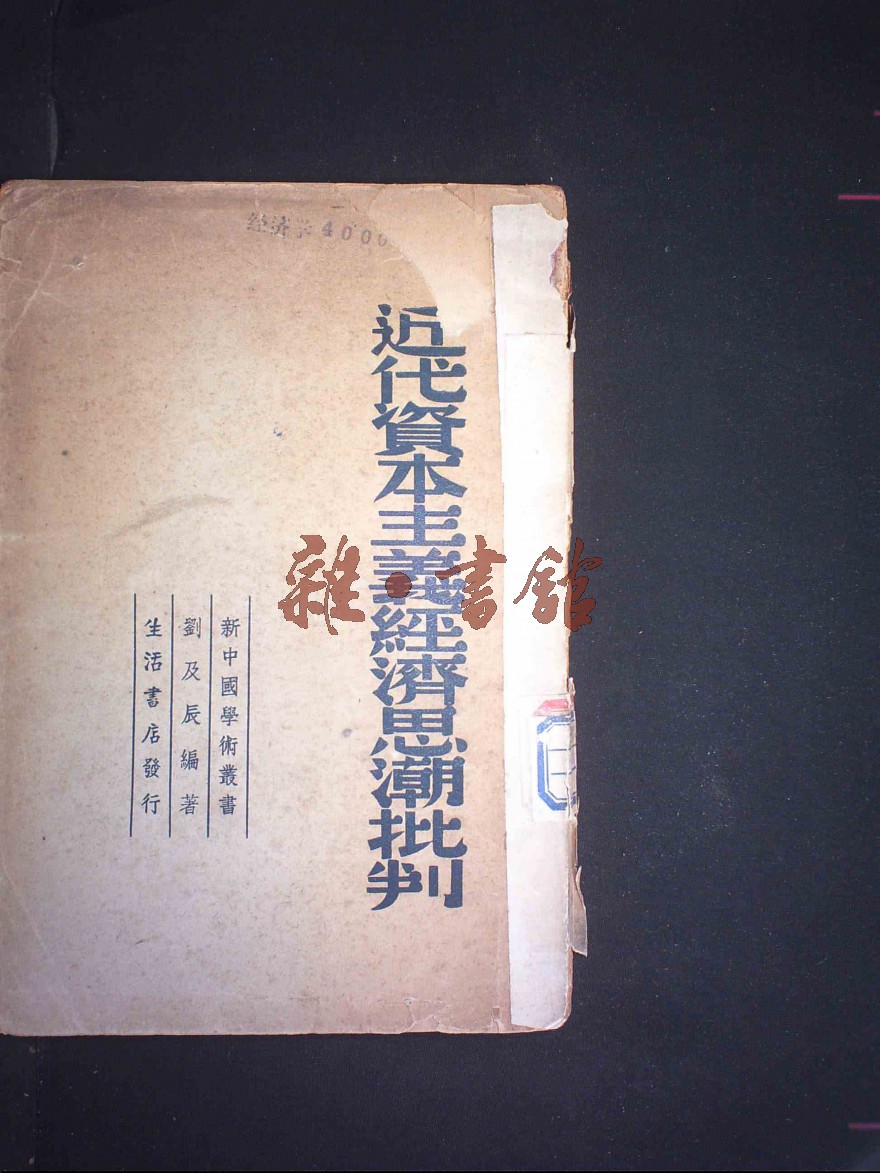 经济学 4000
近代資本主義經濟思潮批判
雜·書館
新中國學術叢書
劉及辰編著
生活書店發行